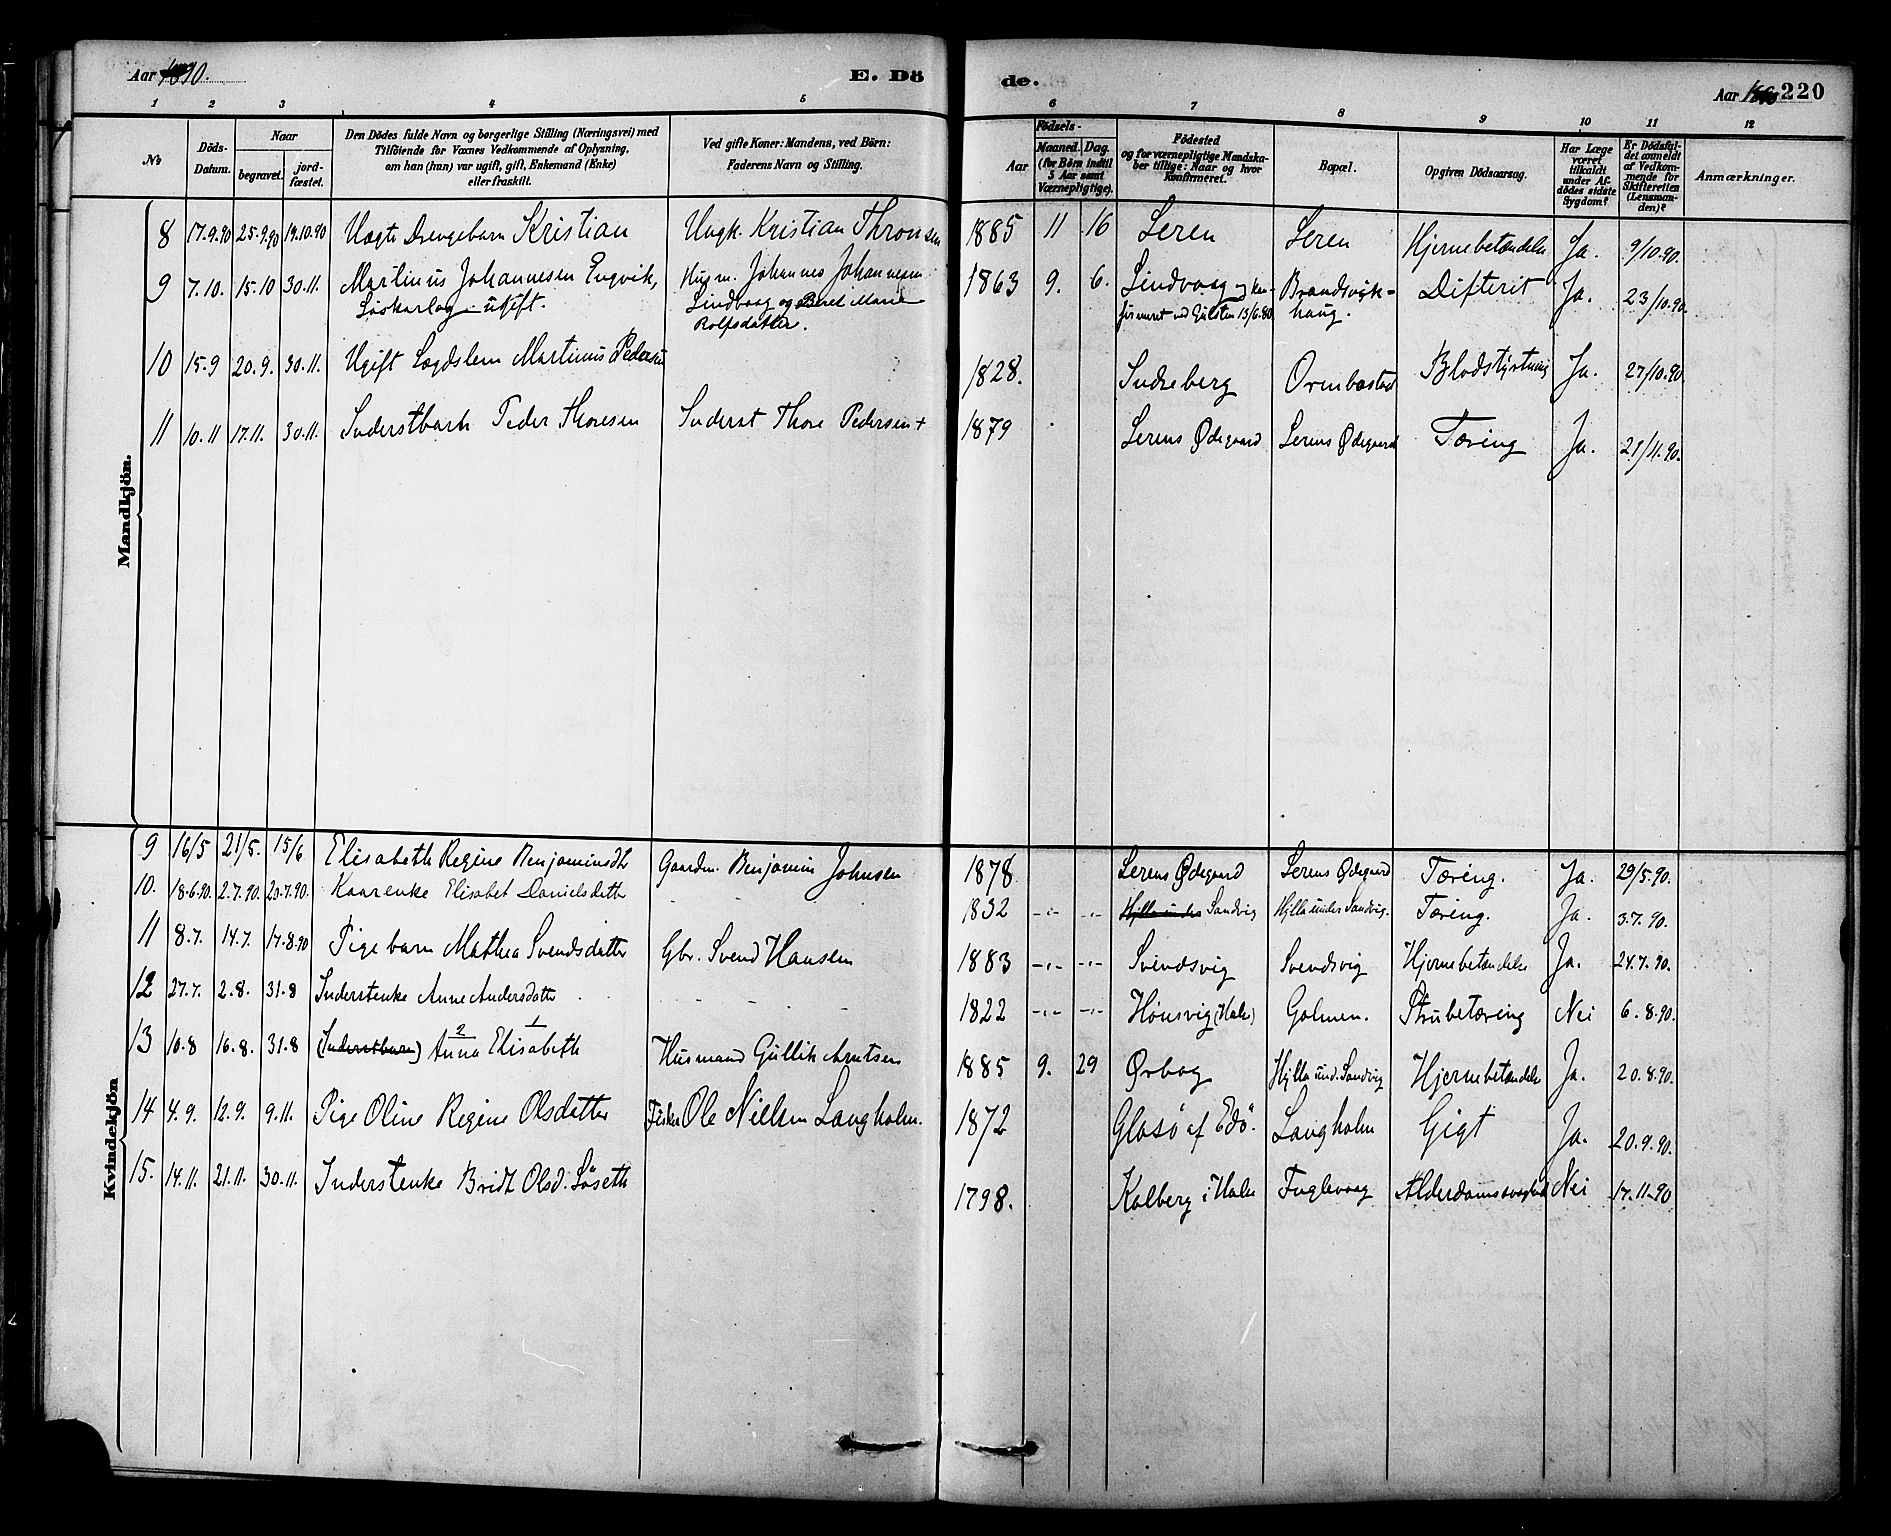 Aar 1890.
E. Dö
de.
Aar 220
1 2 3 4 5 6 7 8 9 10 11 12
No
Döds-Datum.
Naar
begravet.
jordfæstet.
Den Dödes fulde Navn og borgerlige Stilling (Næringsvei) med
Tilföiende for Voxnes Vedkommende af Oplysning,
om han (hun) var ugift, gift, Enkemand (Enke)
eller fraskilt.
Ved gifte Koner: Mandens, ved Börn:
Faderens Navn og Stilling.
Födsels-
Aar
Maaned. Dag.
(for Börn indtil
5 Aar samt
Værnepligtige).
Födested
og for værnepligtige Mandskaber
tillige: Naar og hvor
konfirmeret.
Bopæl.
Opgiven Dödsaarsag.
Har Læge
været
tilkaldt
under Afdödes
sidste
Sygdom?
Er Dödsfaldet
anmeldt
af Vedkommende
for
Skifteretten
(Lensmanden)?
Anmærkninger.
Mandkjön.
8 17.9.90 25.9.90 19.10.90 Uægte Drengebarn Kristian Ungk. Kristian Thronsen 1885 11 16 Leren Leren Hjernebetændelse Ja. 9/10.90.
9 7.10. 15.10 30.11. Martinus Johannesen Engvik, Husm. Johannes Johannesen 1863 9. 6. Lindvaag og kon- Brandsvik- Difterit Ja. 23/10.90.
ugift. Lindvaag og Beret Marie firmeret ved 13/6.80 haug.
Rolfsdatter.
10 15.9 20.9. 30.11. Ugift Lægdslem Martinus Pedersen 1828. Indreberg Ormbostad Blodstyrtning Ja. 27/10.90.
11 10.11 17.11. 30.11. Inderstbarn Peder Thoresen Inderst Thore Pedersen + 1879 Lerens Ødegaard Lerens Ødegaard Tæring Ja. 21/11.90.
Kvindekjön
9 16/5 21/5. 15/6 Elisabeth Regine Benjaminsdtr Gaardm. Benjamin Johnsen 1878 Lerens Ødegaard Lerens Ødegaard Tæring. Ja. 29/5.90.
10. 18.6.90. 2.7.90. 20.7.90. Kaarenke Elisabet Danielsdatter - - 1832 -.- -.- Hylla under Sandvig Hylla under Sandvig. Tæring. Ja. 3.7.90.
11 8.7. 14.7. 17.8.90 Pigebarn Mathea Svendsdatter Gbr. Svend Hansen 1883 -.- -.- Svendsvig Svendsvig Hjernebetændelse Ja. 24.7.90.
12 27.7. 2.8. 31.8 Inderstenke Anne Andersdatter - - - - 1822 -.- -.- Hønsvig (Halse) Golmen. Strubetæring Nei 6.8.90.
13 10.8 16.8. 31.8 (Inderstbarn) 2 Anna 1 Elisabeth Husmand Gullik Arntsen 1885 9. 29 Ørbog Hylla und. Sandvig Hjernebetændelse Ja. 20.8.90.
14 4.9. 12.9. 9.11. Pige Oline Regine Olsdatter Fisker Ole Nielsen Langholm. 1872 Glasö af Edö. Langholm Gigt Ja. 20.9.90.
15. 14.11. 21.11. 30.11. Inderstenke Bridt Olsd. Löseth 1798. Kalberg i Halse Fuglevaag Alderdomssvaghed Nei 17.11.90